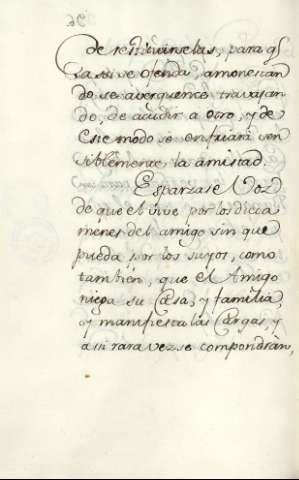 de restituirselas, para q̃
la tal se ofenda, amonestan
do, se averguence, travajan
do, de acudir a otro, y de
este modo se enfriará sen
siblemente la amistad.
Esparzase Voz
de que el vive por los dicta
menes del amigo sin que
pueda por los suyos, como
tambien, que el Amigo
niega su Casa, y familia,
y manifiesta las Cargas, y
assi rara vez se compondran,